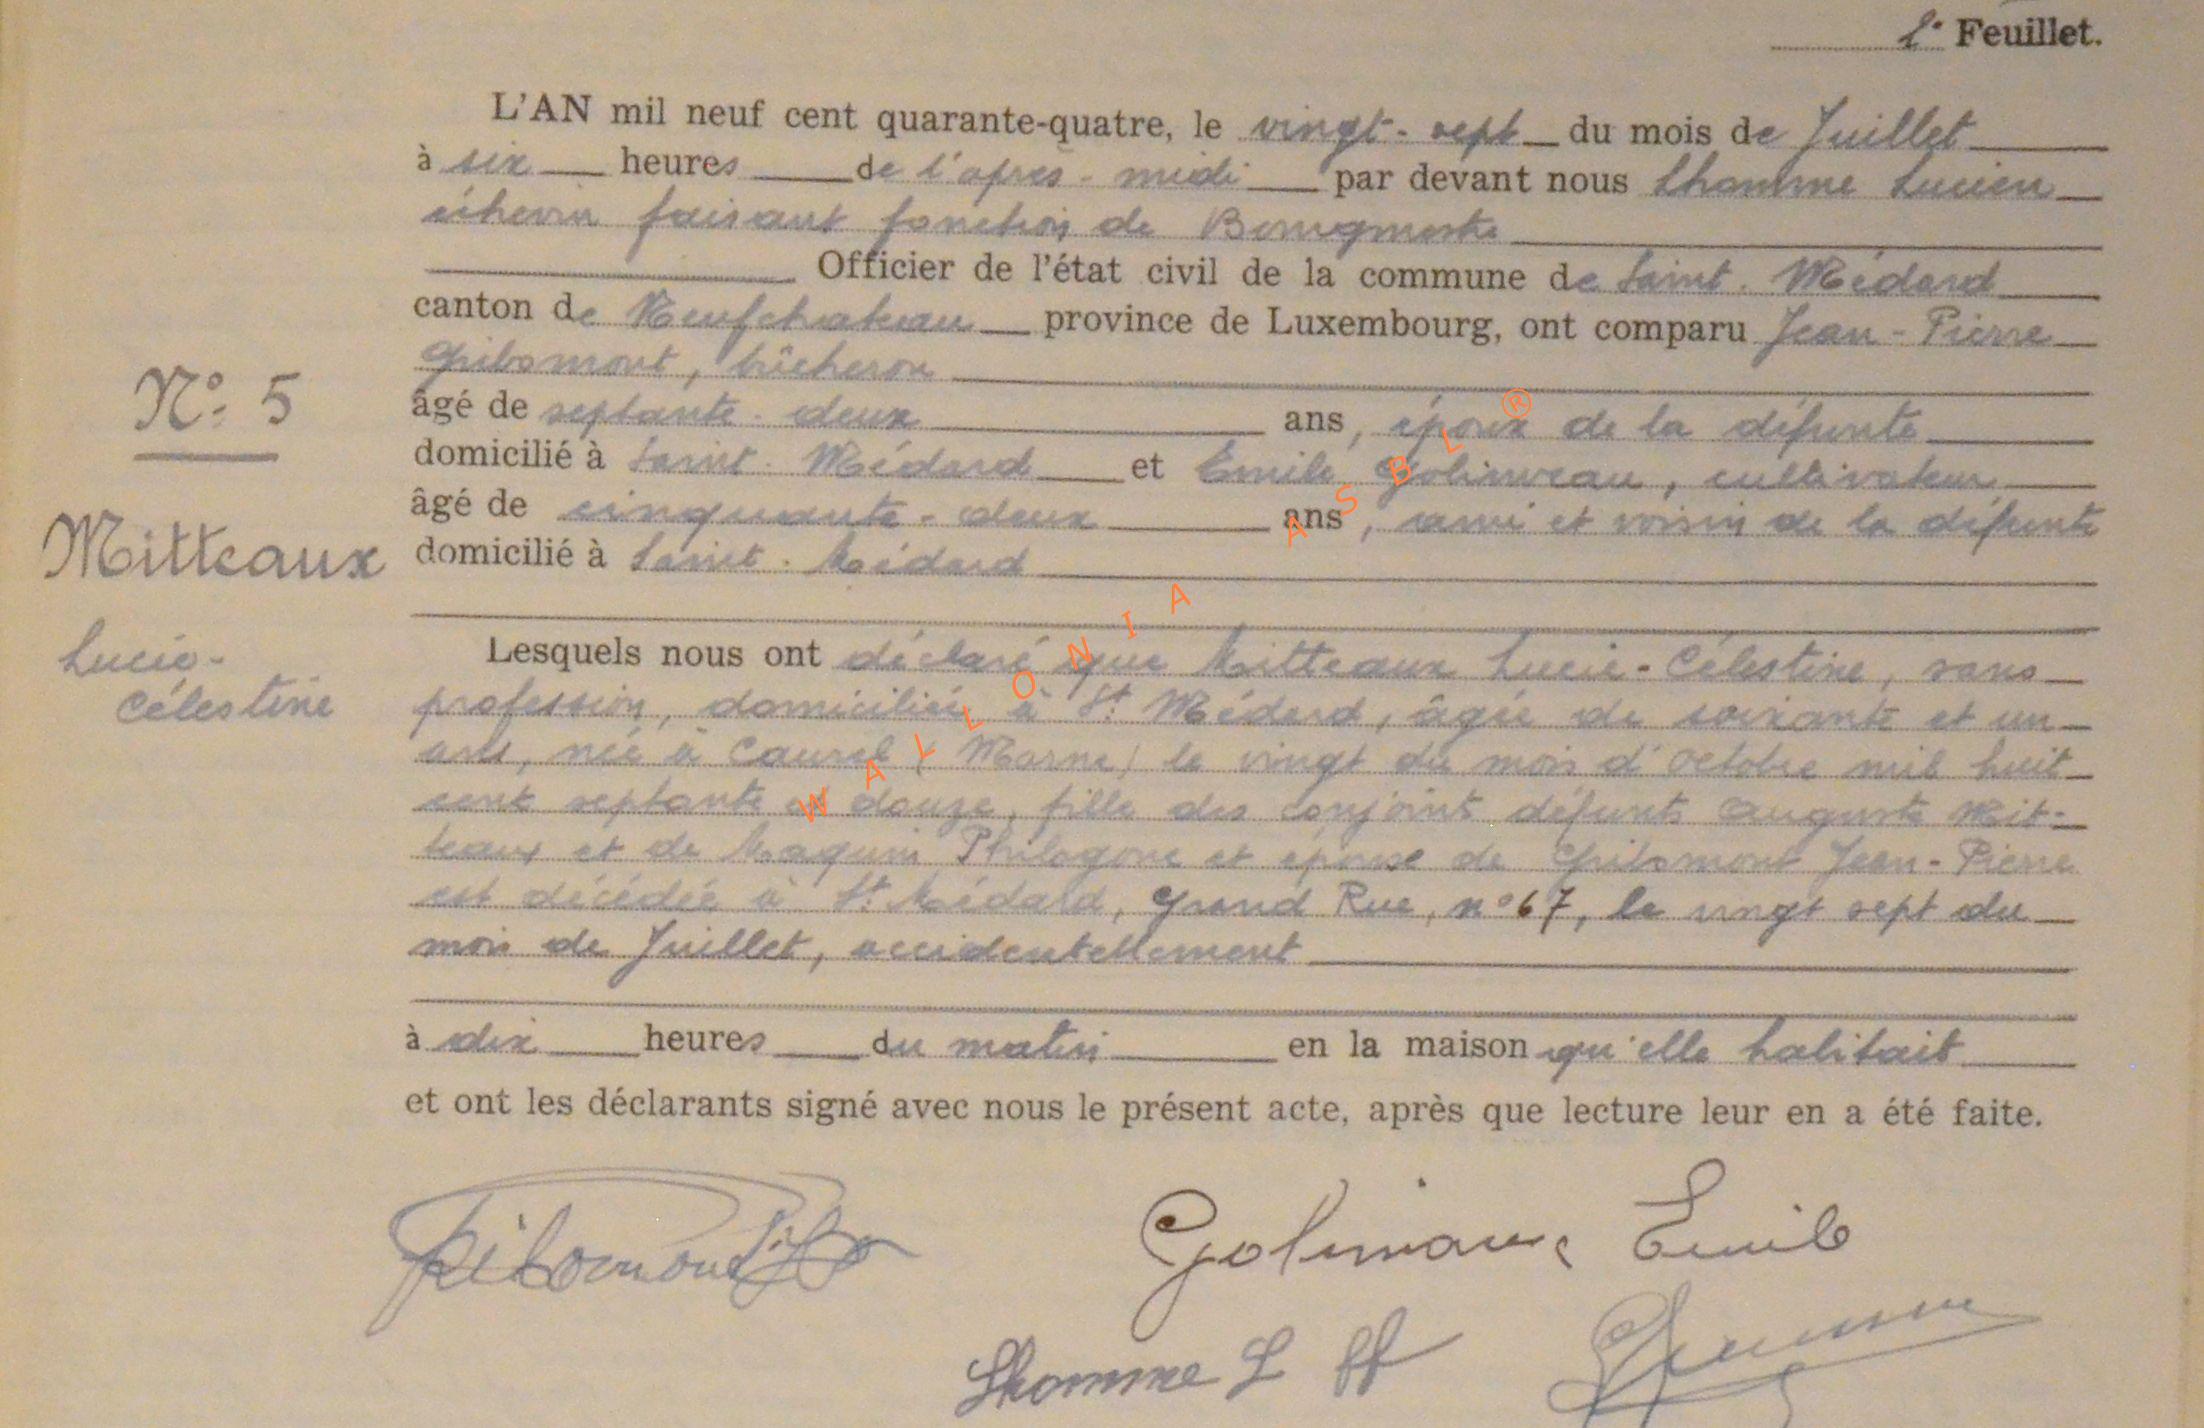 2e Feuillet.
L'AN mil neuf cent quarante-quatre, le vingt-sept du mois de Juillet
à six heures de l'après-midi par devant nous Lhomme Lucien
échevin faisant fonction de Bourgmestre
Officier de l'état civil de la commune de Saint-Médard
canton de Neufchateau province de Luxembourg, ont comparu Jean-Pierre
Gribomont, bûcheron
âgé de septante-deux ans, époux de la défunte
domicilié à Saint-Médard et Emile Golinveau, cultivateur
âgé de cinquante-deux ans, ami et voisin de la défunte
domicilié à Saint-Médard
N° 5
Mitteaux
Lucie-
Célestine
Lesquels nous ont déclaré que Mitteaux Lucie-Célestine, sans
profession, domiciliée à St. Médard, âgée de soixante et un
ans, née à Caurel (Marne) le vingt du mois d'octobre mil huit
cent septante et douze, fille des conjoints défunts Auguste Mit-
teaux et de Maquin Philogone et épouse de Gribomont Jean-Pierre
est décédée à St. Médard, Grand Rue, n° 67, le vingt sept du
mois de Juillet, accidentellement
à dix heures du matin en la maison qu'elle habitait
et ont les déclarants signé avec nous le présent acte, après que lecture leur en a été faite.
Gribomont
Emile
Lhomme L ff
WALLONIA ASBL®